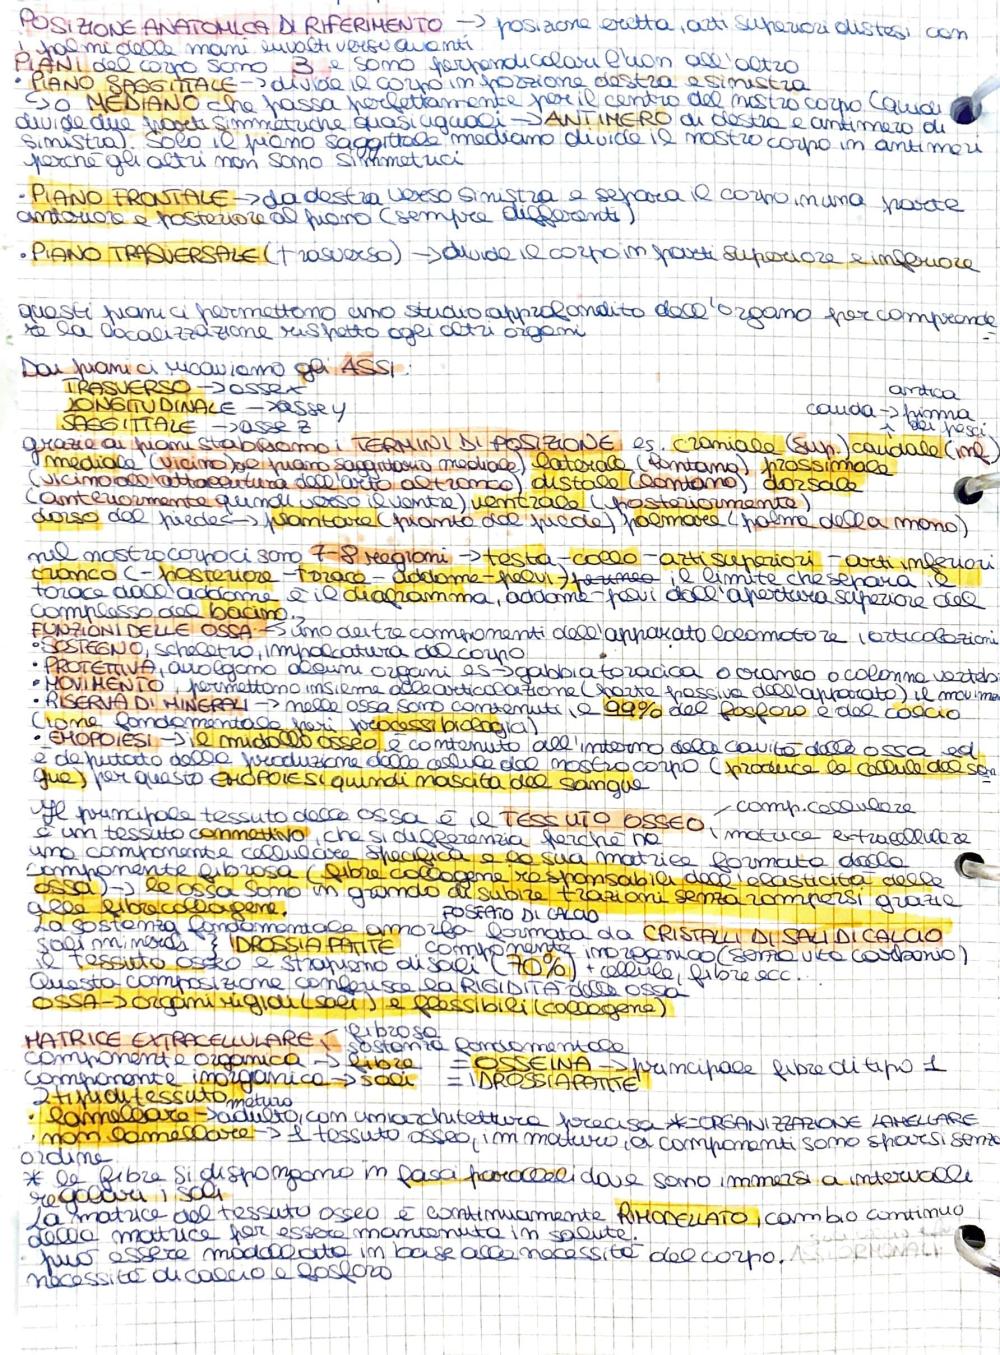 POSIZIONE ANATOMICA DI RIFERIMENTO → posizione eretta, arti superiori distesi con
i palmi delle mani rivolti verso avanti
PIANI del corpo sono 3 e sono perpendicolari l'uno all'altro
• PIANO SAGGITTALE → divide il corpo in porzione destra e sinistra
↳ o MEDIANO che passa perfettamente per il centro del nostro corpo (quindi
divide due parti simmetriche quasi uguali → ANTIMERO di destra e antimero di
sinistra). Solo il piano saggittale mediano divide il nostro corpo in antimeri
perché gli altri non sono simmetrici
• PIANO FRONTALE → da destra verso sinistra e separa il corpo in una parte
anteriore e posteriore al piano (sempre differenti)
• PIANO TRASVERSALE (trasverso) → divide il corpo in parti superiore e inferiore
questi piani ci permettono uno studio approfondito dell'organo per comprende
re la localizzazione rispetto agli altri organi
Dai piani ci ricaviamo gli ASSI:
TRASVERSO → asse x
LONGITUDINALE → asse y
SAGGITTALE → asse z
antica
cauda → pinna
dei pesci
grazie ai piani stabiliamo i TERMINI DI POSIZIONE es. craniale (sup.) caudale (inf)
mediale (vicino) al piano saggittario mediale) laterale (lontano) prossimale
(vicino all'attaccatura dell'arto al tronco) distale (lontano) dorsale
(anteriormente quindi verso il ventre) ventrale (posteriormente)
dorso del piede → plantare (pianta del piede) palmare (palmo della mano)
nel nostro corpo ci sono 7-8 regioni → testa - collo - arti superiori - arti inferiori
tronco (- posteriore - torace - addome - pelvi) perineo il limite che separa il
torace dall'addome è il diaframma, addome-pelvi dall'apertura superiore del
complesso del bacino.
FUNZIONI DELLE OSSA → uno dei tre componenti dell'apparato locomotore, articolazioni
• SOSTEGNO, scheletro, impalcatura del corpo
• PROTETTIVA, avolgono alcuni organi es → gabbia toracica o cranio o colonna vertebr
• MOVIMENTO, permettono insieme alle articolazione (parte passiva dell'apparato) il movimen
• RISERVA DI MINERALI → nelle ossa sono contenuti, il 99% del fosforo e del calcio
(ione fondamentale per i processi biologia)
• EMOPOIESI → il midollo osseo è contenuto all'interno della cavità delle ossa ed
è deputato della produzione delle cellule del nostro corpo (produce le cellule del san
gue) per questo EMOPOIESI quindi nascita del sangue
Il principale tessuto delle ossa è il TESSUTO OSSEO / comp. cellulare
è un tessuto connettivo, che si differenzia perché ha \ matrice extracellulare
una componente cellulare specifica e la sua matrice formata dalla
componente fibrosa (fibre collagene responsabili dell'elasticità delle
ossa) → le ossa sono in grando di subire trazioni senza rompersi grazie
alle fibre collagene.
FOSFATO DI CALCIO
La sostanza fondamentale amorfa formata da CRISTALLI DI SALI DI CALCIO
sali minerali { IDROSSIAPATITE componente inorganico (senza vita carbonio)
il tessuto osseo è strapieno di sali (70%) + cellule, fibre ecc.
Questa composizione conferisce la RIGIDITÀ delle ossa
OSSA → organi rigidi (sali) e flessibili (collagene)
MATRICE EXTRACELLULARE < fibrosa
sostanza fondamentale
componente organica → fibre = OSSEINA → principale fibre di tipo 1
componente inorganica → sali = IDROSSIAPATITE
2 tipi di tessuto maturo
• lamellare → adulto, con un'architettura precisa *= ORGANIZZAZIONE LAMELLARE
• non lamellare → 1 tessuto osseo, immaturo, i componenti sono sparsi senza
ordine.
* le fibre si dispongano in fasci paralleli dove sono immersi a intervalli
regolari i sali
La matrice del tessuto osseo è continuamente RIMODELLATO, cambio continuo
della matrice per essere mantenuta in salute.
• può essere modellata in base alle necessità del corpo.
necessità di calcio e fosforo